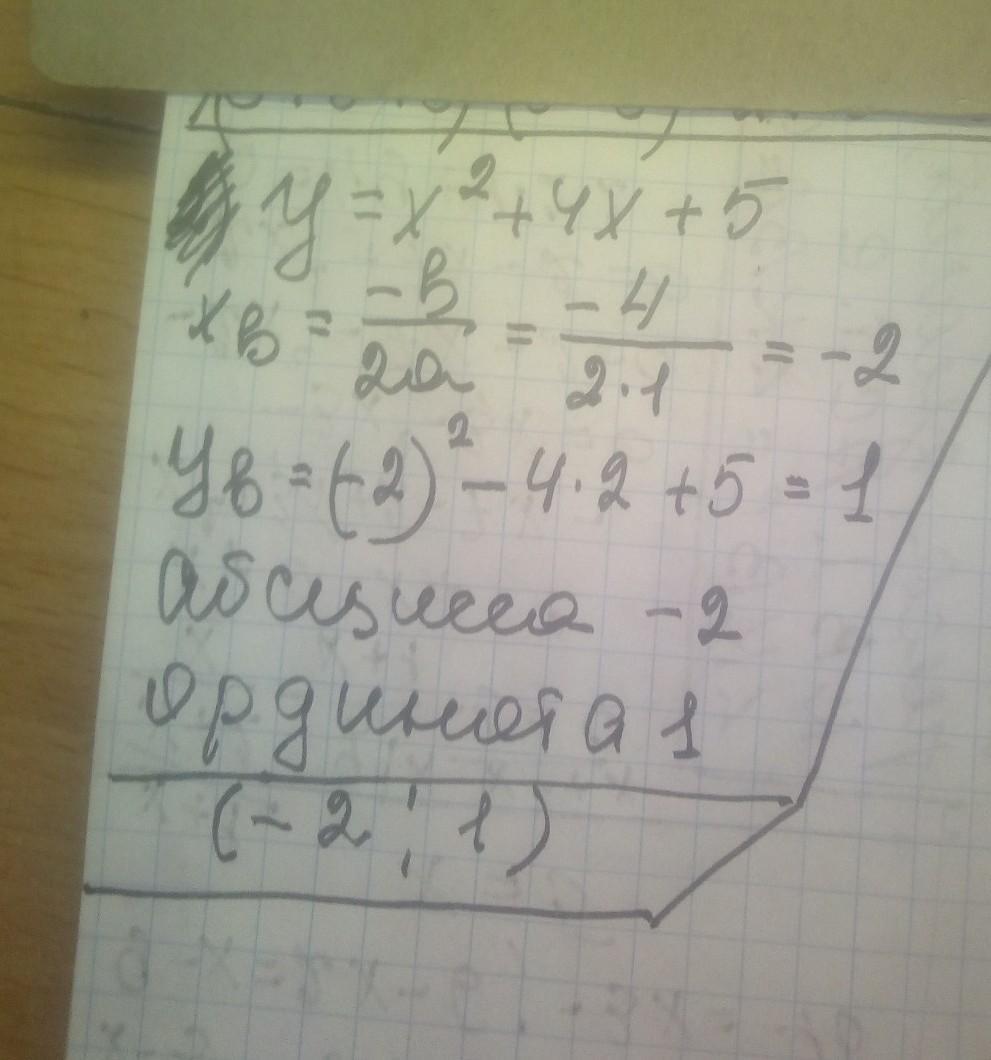 y = x² + 4x + 5
xв = -в/2a = -4/2·1 = -2
yв = (-2)² - 4·2 + 5 = 1
абсцисса -2
ордината 1
(-2 ; 1)